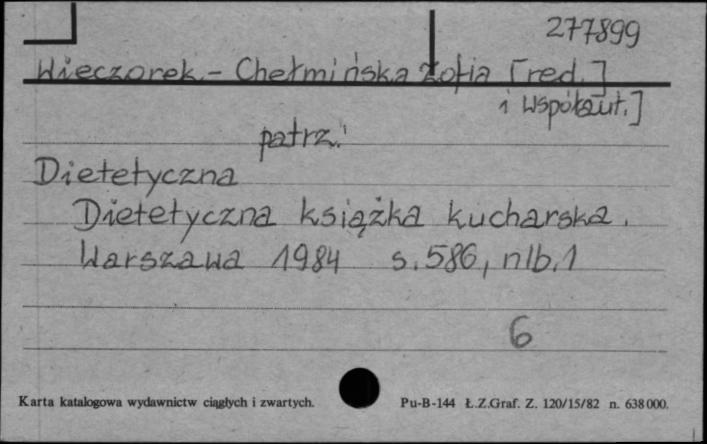 277899
Wieczorek-Chełmińska Zofia [red.]
i współaut.]
patrz:
Dietetyczna
Dietetyczna książka kucharska.
Warszawa 1984 s. 586, nlb. 1
6
Karta katalogowa wydawnictw ciągłych i zwartych. Pu-B-144 Ł.Z.Graf. Z. 120/15/82 n. 638000.